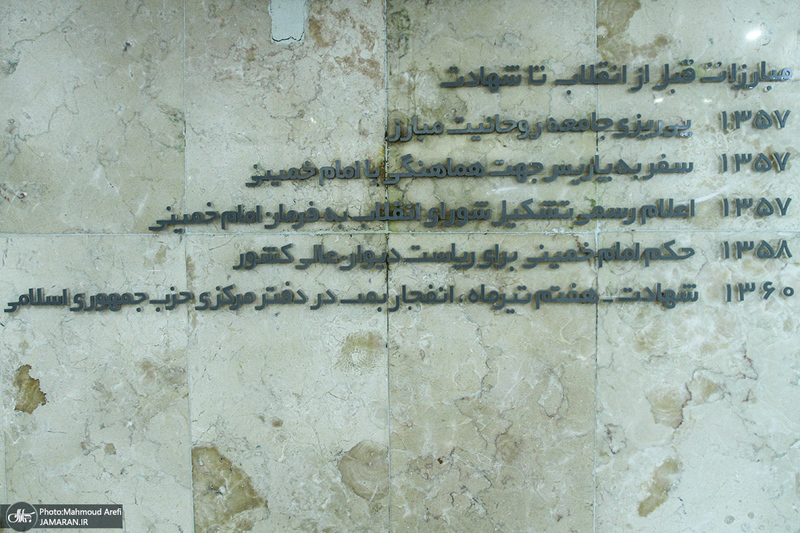 مبارزات قبل از انقلاب تا شهادت
۱۳۵۷ پی‌ریزی جامعه روحانیت مبارز
۱۳۵۷ سفر به پاریس جهت هماهنگی با امام خمینی
۱۳۵۷ اعلام رسمی تشکیل شورای انقلاب به فرمان امام خمینی
۱۳۵۸ حکم امام خمینی برای ریاست دیوان عالی کشور
۱۳۶۰ شهادت - هفتم تیرماه، انفجار بمب در دفتر مرکزی حزب جمهوری اسلامی
Photo:Mahmoud Arefi
JAMARAN.IR